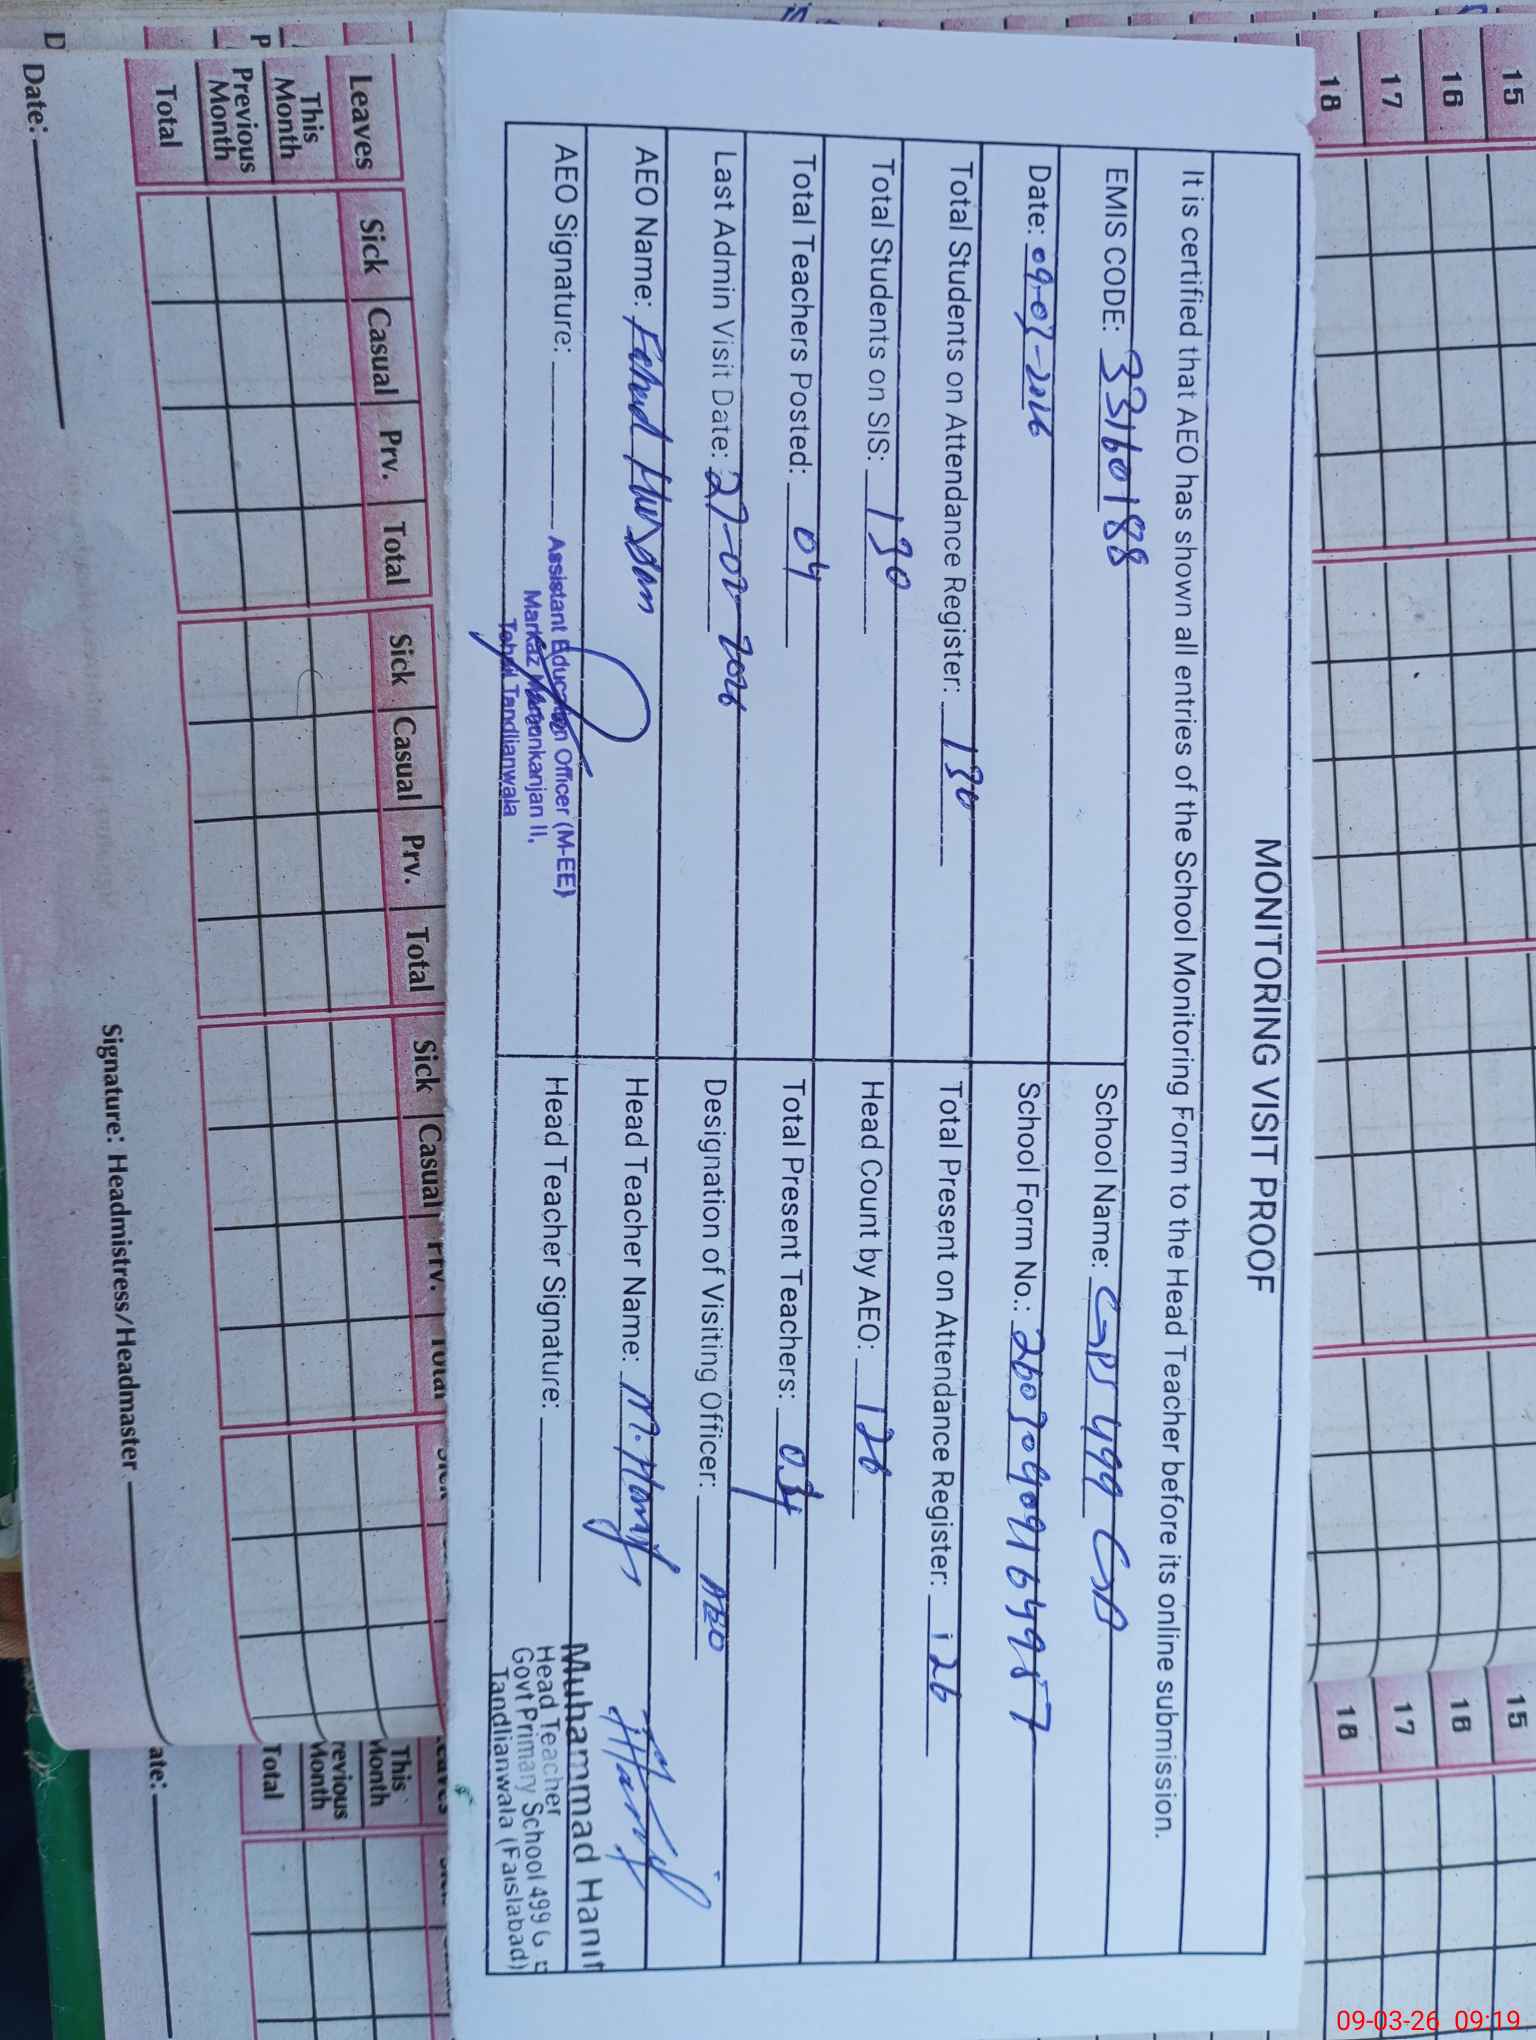 MONITORING VISIT PROOF
It is certified that AEO has shown all entries of the School Monitoring Form to the Head Teacher before its online submission.
EMIS CODE: 33160188
School Name: GPS 499 GB
Date: 09-03-2026
School Form No.:
Total Students on Attendance Register: 130
Total Present on Attendance Register: 126
Total Students on SIS: 130
Head Count by AEO: 126
Total Teachers Posted: 04
Total Present Teachers: 04
Last Admin Visit Date: 27-02-2026
Designation of Visiting Officer: AEO
AEO Name: Fahad Hassan
Head Teacher Name: M. Hanif
AEO Signature:
Assistant Education Officer (M-EE)
Markaz Mamonkanjan II,
Tehsil Tandlianwala
Head Teacher Signature:
M Hanif
Muhammad Hanif
Head Teacher
Govt Primary School 499 G
Tandlianwala (Faislabad)
15
16
17
18
15
16
17
18
Leaves
Sick Casual Prv. Total
Sick Casual Prv. Total
Sick Casual Prv. Total
This Month
Previous Month
Total
This Month
Total
Signature: Headmistress/Headmaster
Date:
09-03-26 09:19